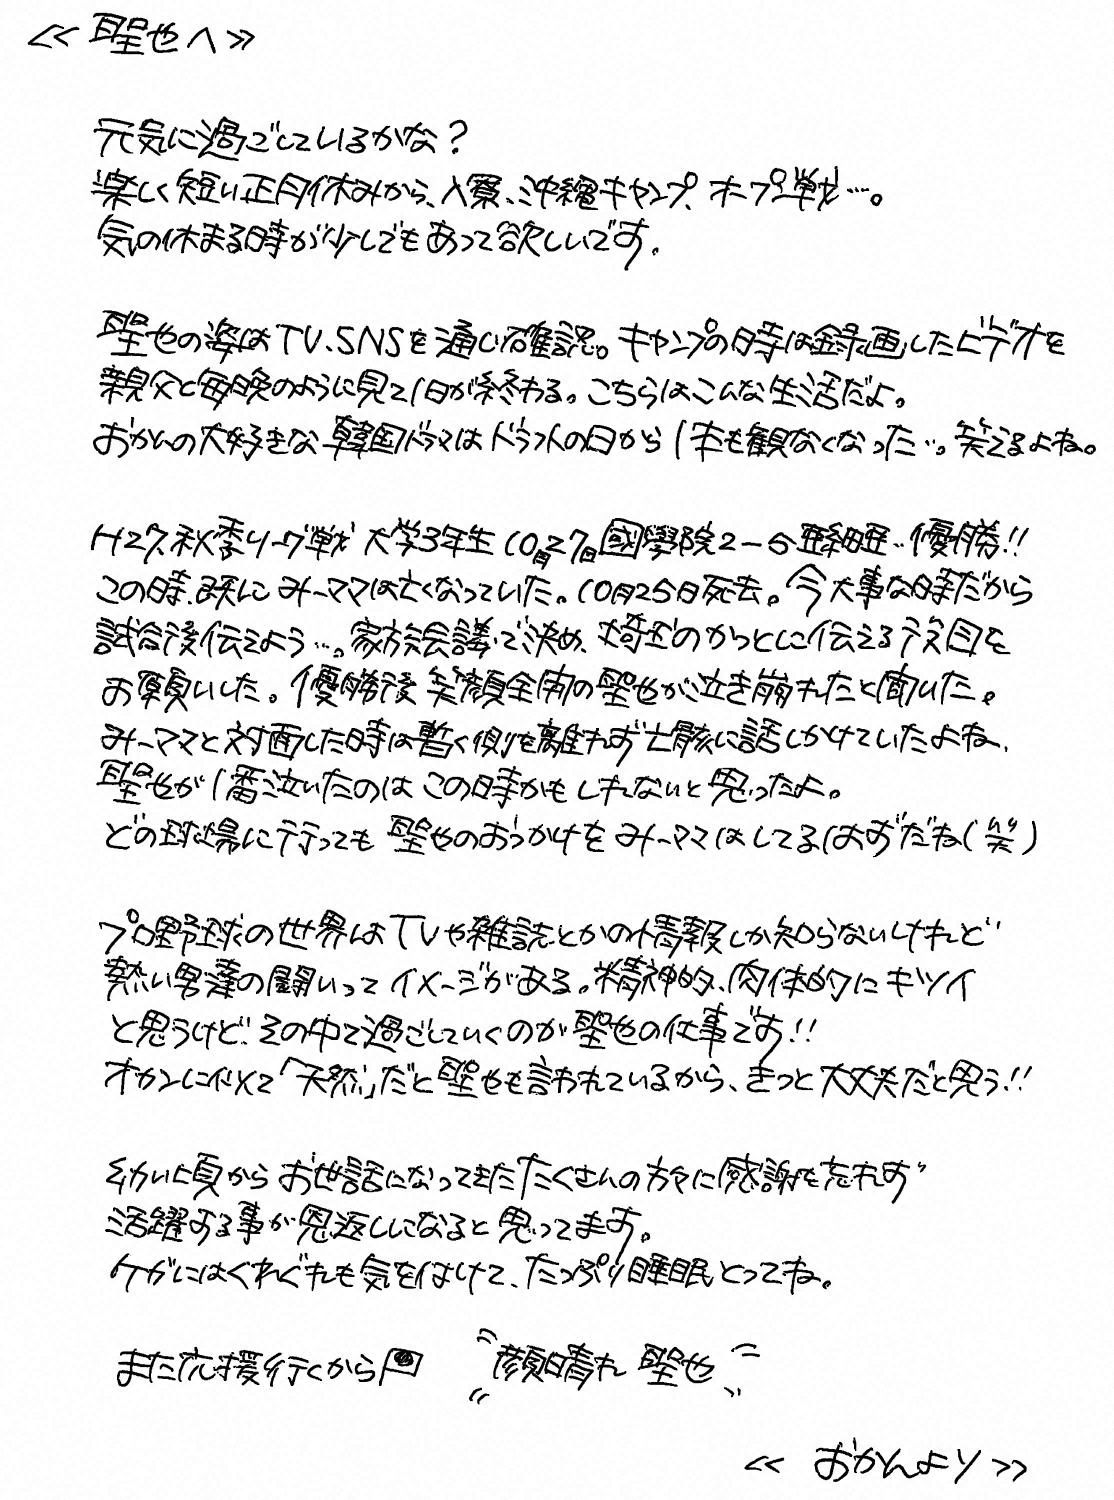 ≪聖也へ≫
元気に過ごしているかな？
楽しく短い正月休みから、入寮、沖縄キャンプ、オープン戦…。
気の休まる時が少しでもあって欲しいです。
聖也の姿はTV、SNSを通じ確認。キャンプの時は録画したビデオを
親父と毎晩のように見て1日が終わる。こちらはこんな生活だよ。
おかんの大好きな韓国ドラマはドラフトの日から1本も観なくなった…。笑えるよね。
H27、秋季リーグ戦 大学3年生 10月27日國學院2-6亜細亜…優勝!!
この時、既にみーママは亡くなっていた。10月25日死去。今大事な時だから
試合後伝えよう…。家族会議で決め、埼玉のかっとしに伝える役目を
お願いした。優勝後 笑顔全開の聖也が泣き崩れたと聞いた。
みーママと対面した時は暫く側を離れず亡骸に話しかけていたよね、
聖也が1番泣いたのはこの時かもしれないと思ったよ。
どの球場に行っても聖也のおっかけをみーママはしてるはずだね(笑)
プロ野球の世界はTVや雑誌とかの情報しか知らないけれど
熱い男達の闘いってイメージがある。精神的、肉体的にキツイ
と思うけど、その中で過ごしていくのが聖也の仕事です!!
オカンに似て「天然」だと聖也も言われているから、きっと大丈夫だと思う!!
幼い頃からお世話になってきたたくさんの方々に感謝を忘れず
活躍する事が恩返しになると思ってます。
ケガにはくれぐれも気を付けて、たっぷり睡眠とってね。
また応援行くから 〝顔晴れ 聖也〟
≪おかんより≫